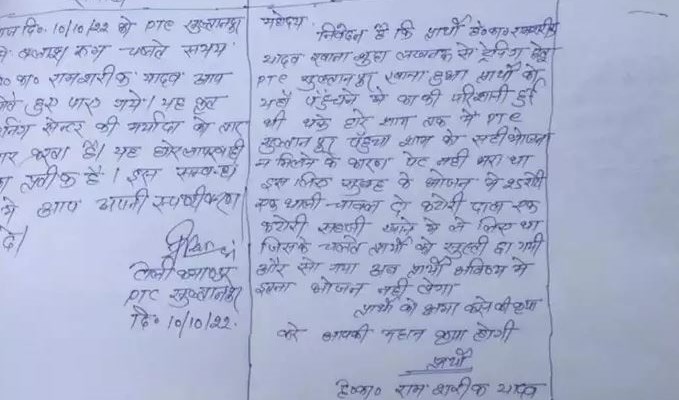 दि० 10/10/22 को PTC
क्लास रूम चलते समय
का० रामशरीक यादव आप
हुए पाए गये। यह कृत्य
सेन्टर की मर्यादा को तार
करता है। यह घोर लापरवाही
प्रतीक है। इस सम्बन्ध
मे आप अपनी स्पष्टीकरण
दे।
PTC
दि० 10/10/22.
महोदय
निवेदन है कि प्रार्थी हे०का० रामशरीक
यादव रवाना शुदा लखनऊ से ट्रेनिंग हेतु
PTC रवाना हुआ प्रार्थी को
यहाँ पहुँचने मे काफी परेशानी हुई
थी थके होर शाम तक मे PTC
पहुँचा शाम को सही भोजन
न मिलने के कारण पेट नही भरा था
इस लिए सुबह के भोजन मे 25 रोटी
एक थाली चावल दो कटोरी दाल एक
कटोरी सब्जी खाने मे ले लिए था
जिसके चलते प्रार्थी को सुस्ती छा गयी
और सो गया अब प्रार्थी भविष्य मे
इतना भोजन नही लेगा
प्रार्थी को क्षमा करने की कृपा
करे आपकी महान कृपा होगी
प्रार्थी
हे०का० राम शरीक यादव